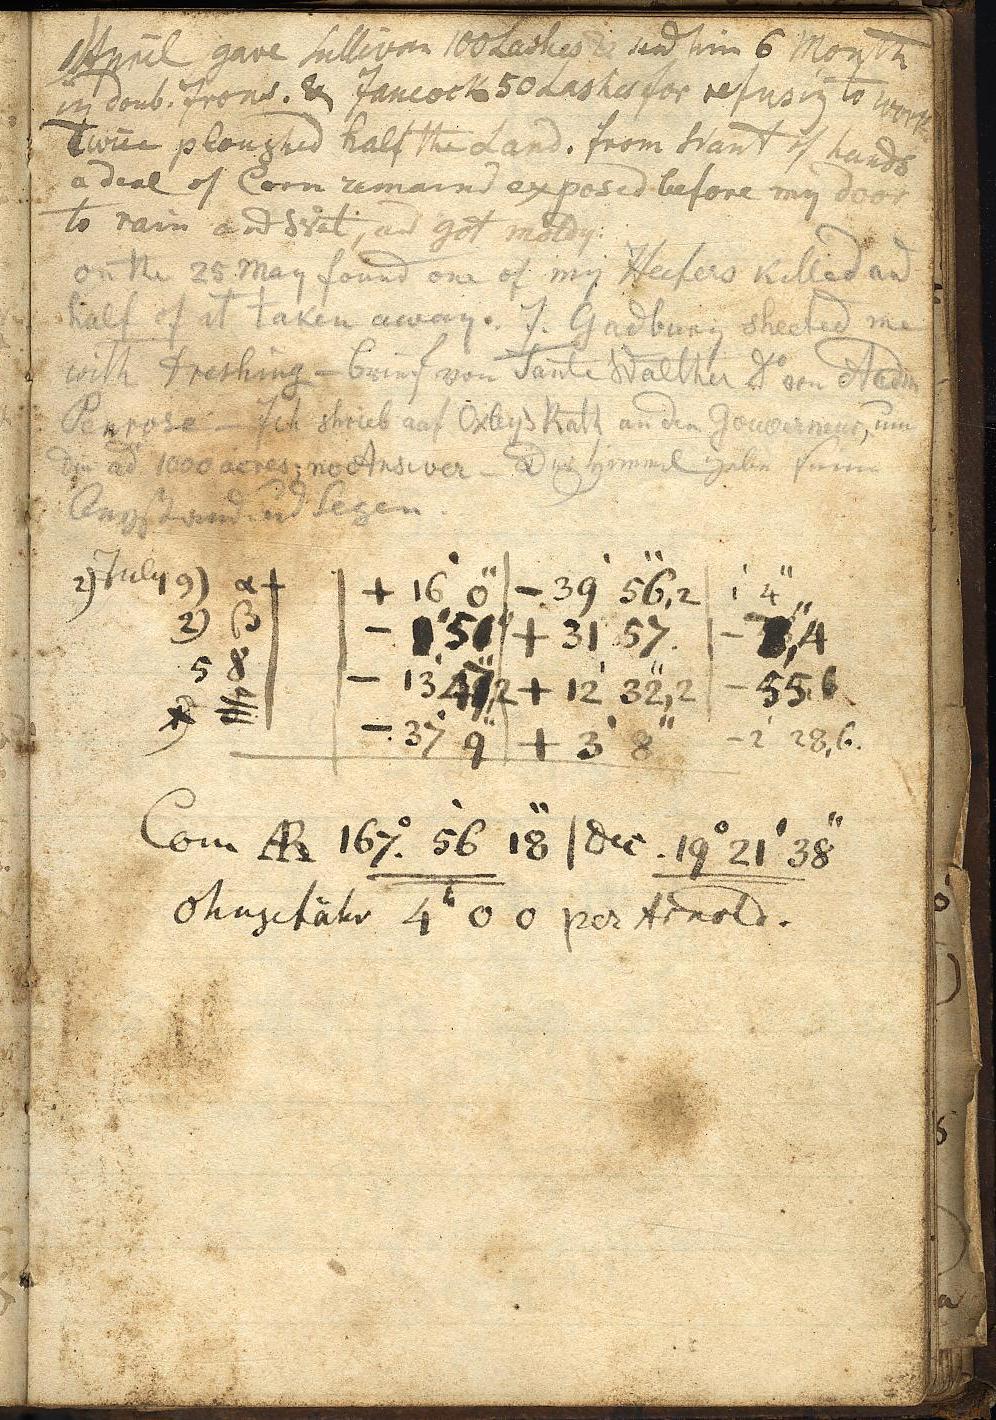 April gave Sullivan 100 Lashes & send him 6 Month
in doub. Irons. & Jancock 50 Lashes for refusig to work
twice ploughed half the Land. from Want of hands
a deal of Corn remaind exposed before my door
to rain and Wet, and got moldy.
on the 25 May found one of my Heefers killed and
half of it taken away. J. Gadbury sheeted me
with treshing – brief von Tante Walther & do von
Penrose – Ich shrieb auf Oxley's Rath an den Gouverneur, um
die ad. 1000 acres; no Answer – Der himmel gebe
und Segen.
2) July 9) α + | + 16' 0" | - 39' 56,2" | 1' 4"
2) β | - 51" | + 31' 57. | - ,4
5 8 | - 13' ,2 | + 12' 32",2 | - 55.6
- 37' 9" | + 3' 8" | - 2' 28,6.
Com AR 167°. 56' 18" | Dec. 19° 21' 38"
ohngefähr 4h 0 0 per Arnold.